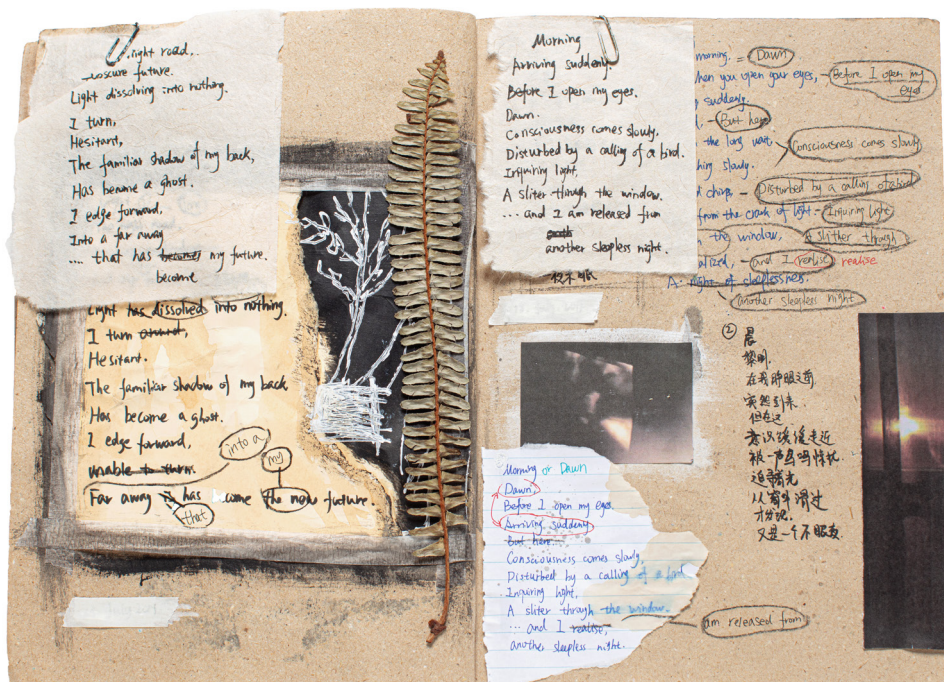 right road..
obscure future.
Light dissolving into nothing.
I turn,
Hesitant,
The familiar shadow of my back,
Has become a ghost.
I edge forward,
Into a far away
.... that has becomes my future.
become
Light has dissolved into nothing.
I turn
Hesitant.
The familiar shadow of my back
Has become a ghost.
I edge forward,
into a
unable to turn.
my
Far away is has become the new future.
that
Morning
Arriving suddenly.
Before I open my eyes.
Dawn.
Consciousness comes slowly,
Disturbed by a calling of a bird.
Inquiring light,
A sliter through the window.
... and I am released from
another sleepless night.
morning. = Dawn
when you open your eyes, - Before I open my eyes
suddenly.
- But here
the long wait
Consciousness comes slowly
slowly.
chirps - Disturbed by a calling of a bird
from the crack of light - Inquiring light
the window, A slither through
and I realise realise
A night of sleeplessness.
another sleepless night
②
晨
黎明.
在我睁眼之前
突然到来
但在这
意识缓慢走近
被一声鸟鸣惊扰
追寻曙光
从窗牛滑过
才发现.
又是一个不眠夜
Morning or Dawn
Dawn.
Before I open my eyes.
Arriving suddenly
But here...
Consciousness comes slowly,
Disturbed by a calling of a bird
Inquiring light,
A sliter through the window.
... and I realise,
am released from
another sleepless night.